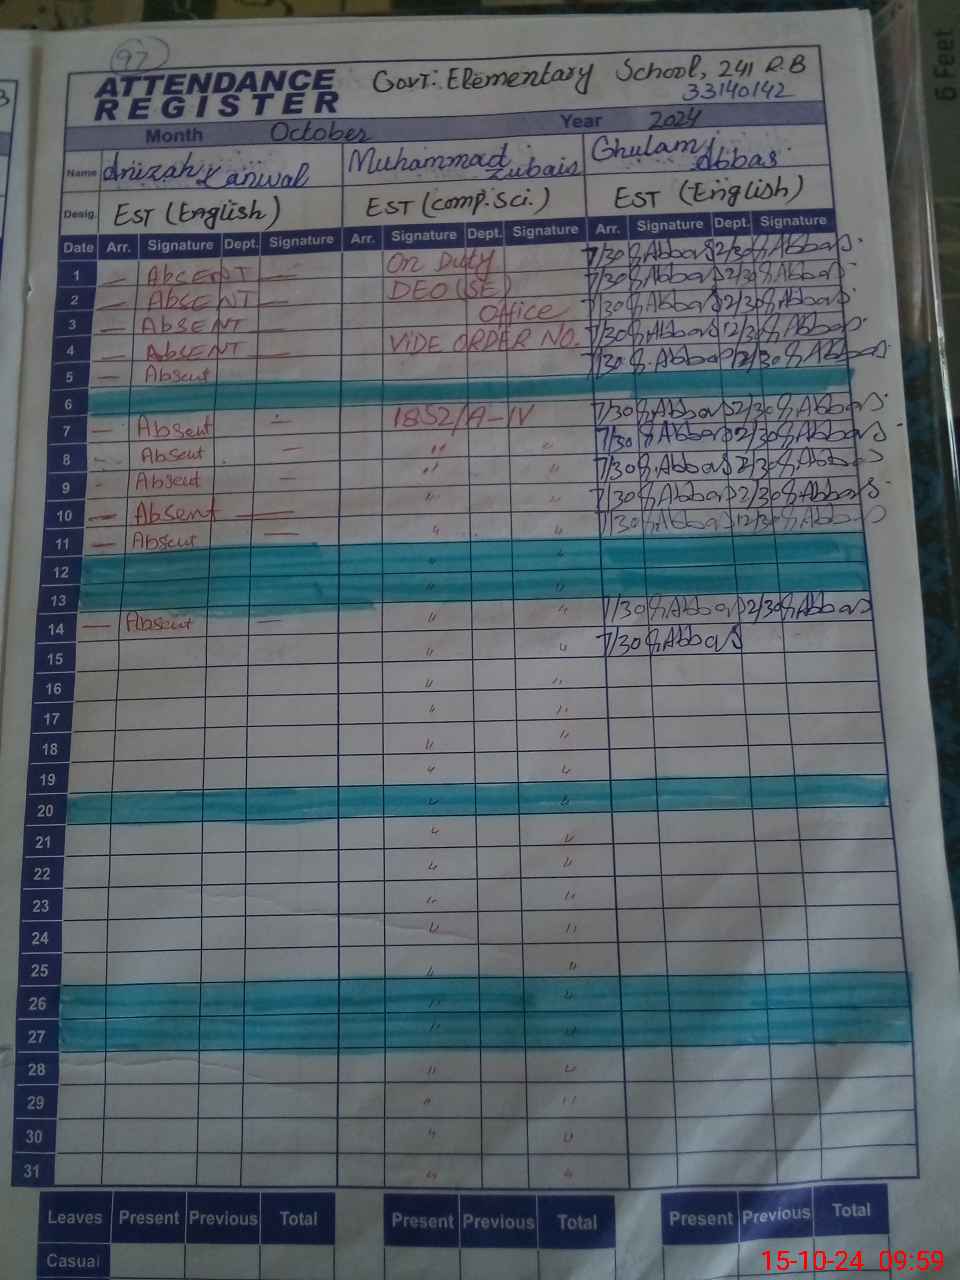 97
ATTENDANCE REGISTER Govt: Elementary School, 241 R.B
33140142
Month October Year 2024
Name Anizah Kanwal Muhammad Zubair Ghulam Abbas
Desig. EST (English) EST (Comp. Sci.) EST (English)
Date Arr. Signature Dept. Signature Arr. Signature Dept. Signature Arr. Signature Dept. Signature
1 — AbsENT — On Duty 7/30 G.Abbas 2/30 G.Abbas
2 — AbsENT — DEO (SE) 7/30 G.Abbas 2/30 G.Abbas
3 — AbsENT — Office 7/30 G.Abbas 2/30 G.Abbas
4 — AbsENT — ViDE ORDER NO. 7/30 G.Abbas 12/30 G.Abbas
5 — Absent 7/30 G.Abbas 12/30 G.Abbas
6
7 — Absent — 1852/A-IV 7/30 G.Abbas 2/30 G.Abbas
8 — Absent — " " 7/30 G.Abbas 2/30 G.Abbas
9 - Absent — " " 7/30 G.Abbas 2/30 G.Abbas
10 — Absent — " " 7/30 G.Abbas 2/30 G.Abbas
11 — Absent — " " 7/30 G.Abbas 12/30 G.Abbas
12 " "
13 " "
14 — Absent — " " 7/30 G.Abbas 2/30 G.Abbas
15 " " 7/30 G.Abbas
16 " "
17 " "
18 " "
19 " "
20 " "
21 " "
22 " "
23 " "
24 " "
25 " "
26 " "
27 " "
28 " "
29 " "
30 " "
31 " "
Leaves Present Previous Total Present Previous Total Present Previous Total
Casual
15-10-24 09:59
6 Feet